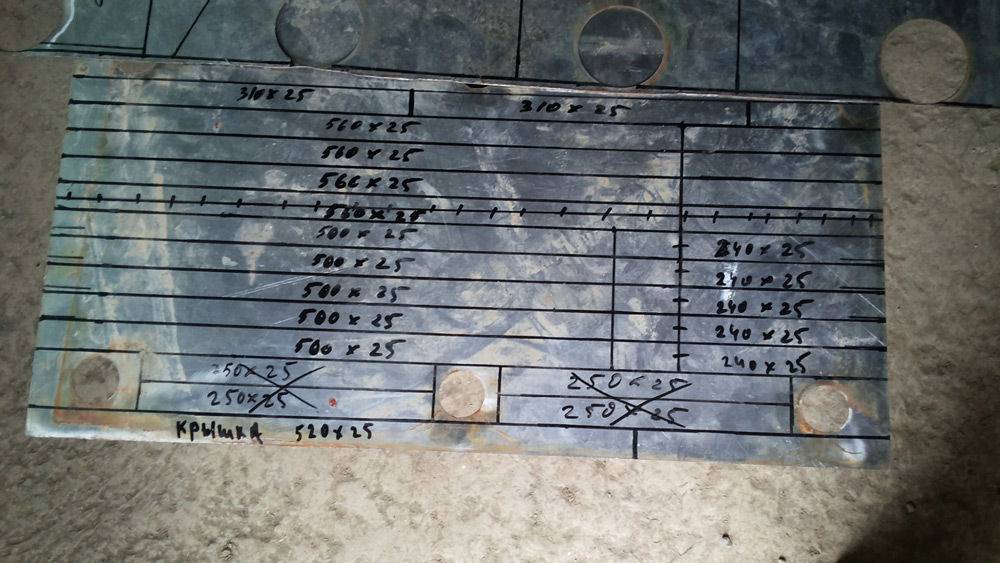 310 x 25 310 x 25
560 x 25
560 x 25
560 x 25
560 x 25
500 x 25 240 x 25
500 x 25 240 x 25
500 x 25 240 x 25
500 x 25 240 x 25
500 x 25 240 x 25
250 x 25 250 x 25
250 x 25 250 x 25
крышка 520 x 25